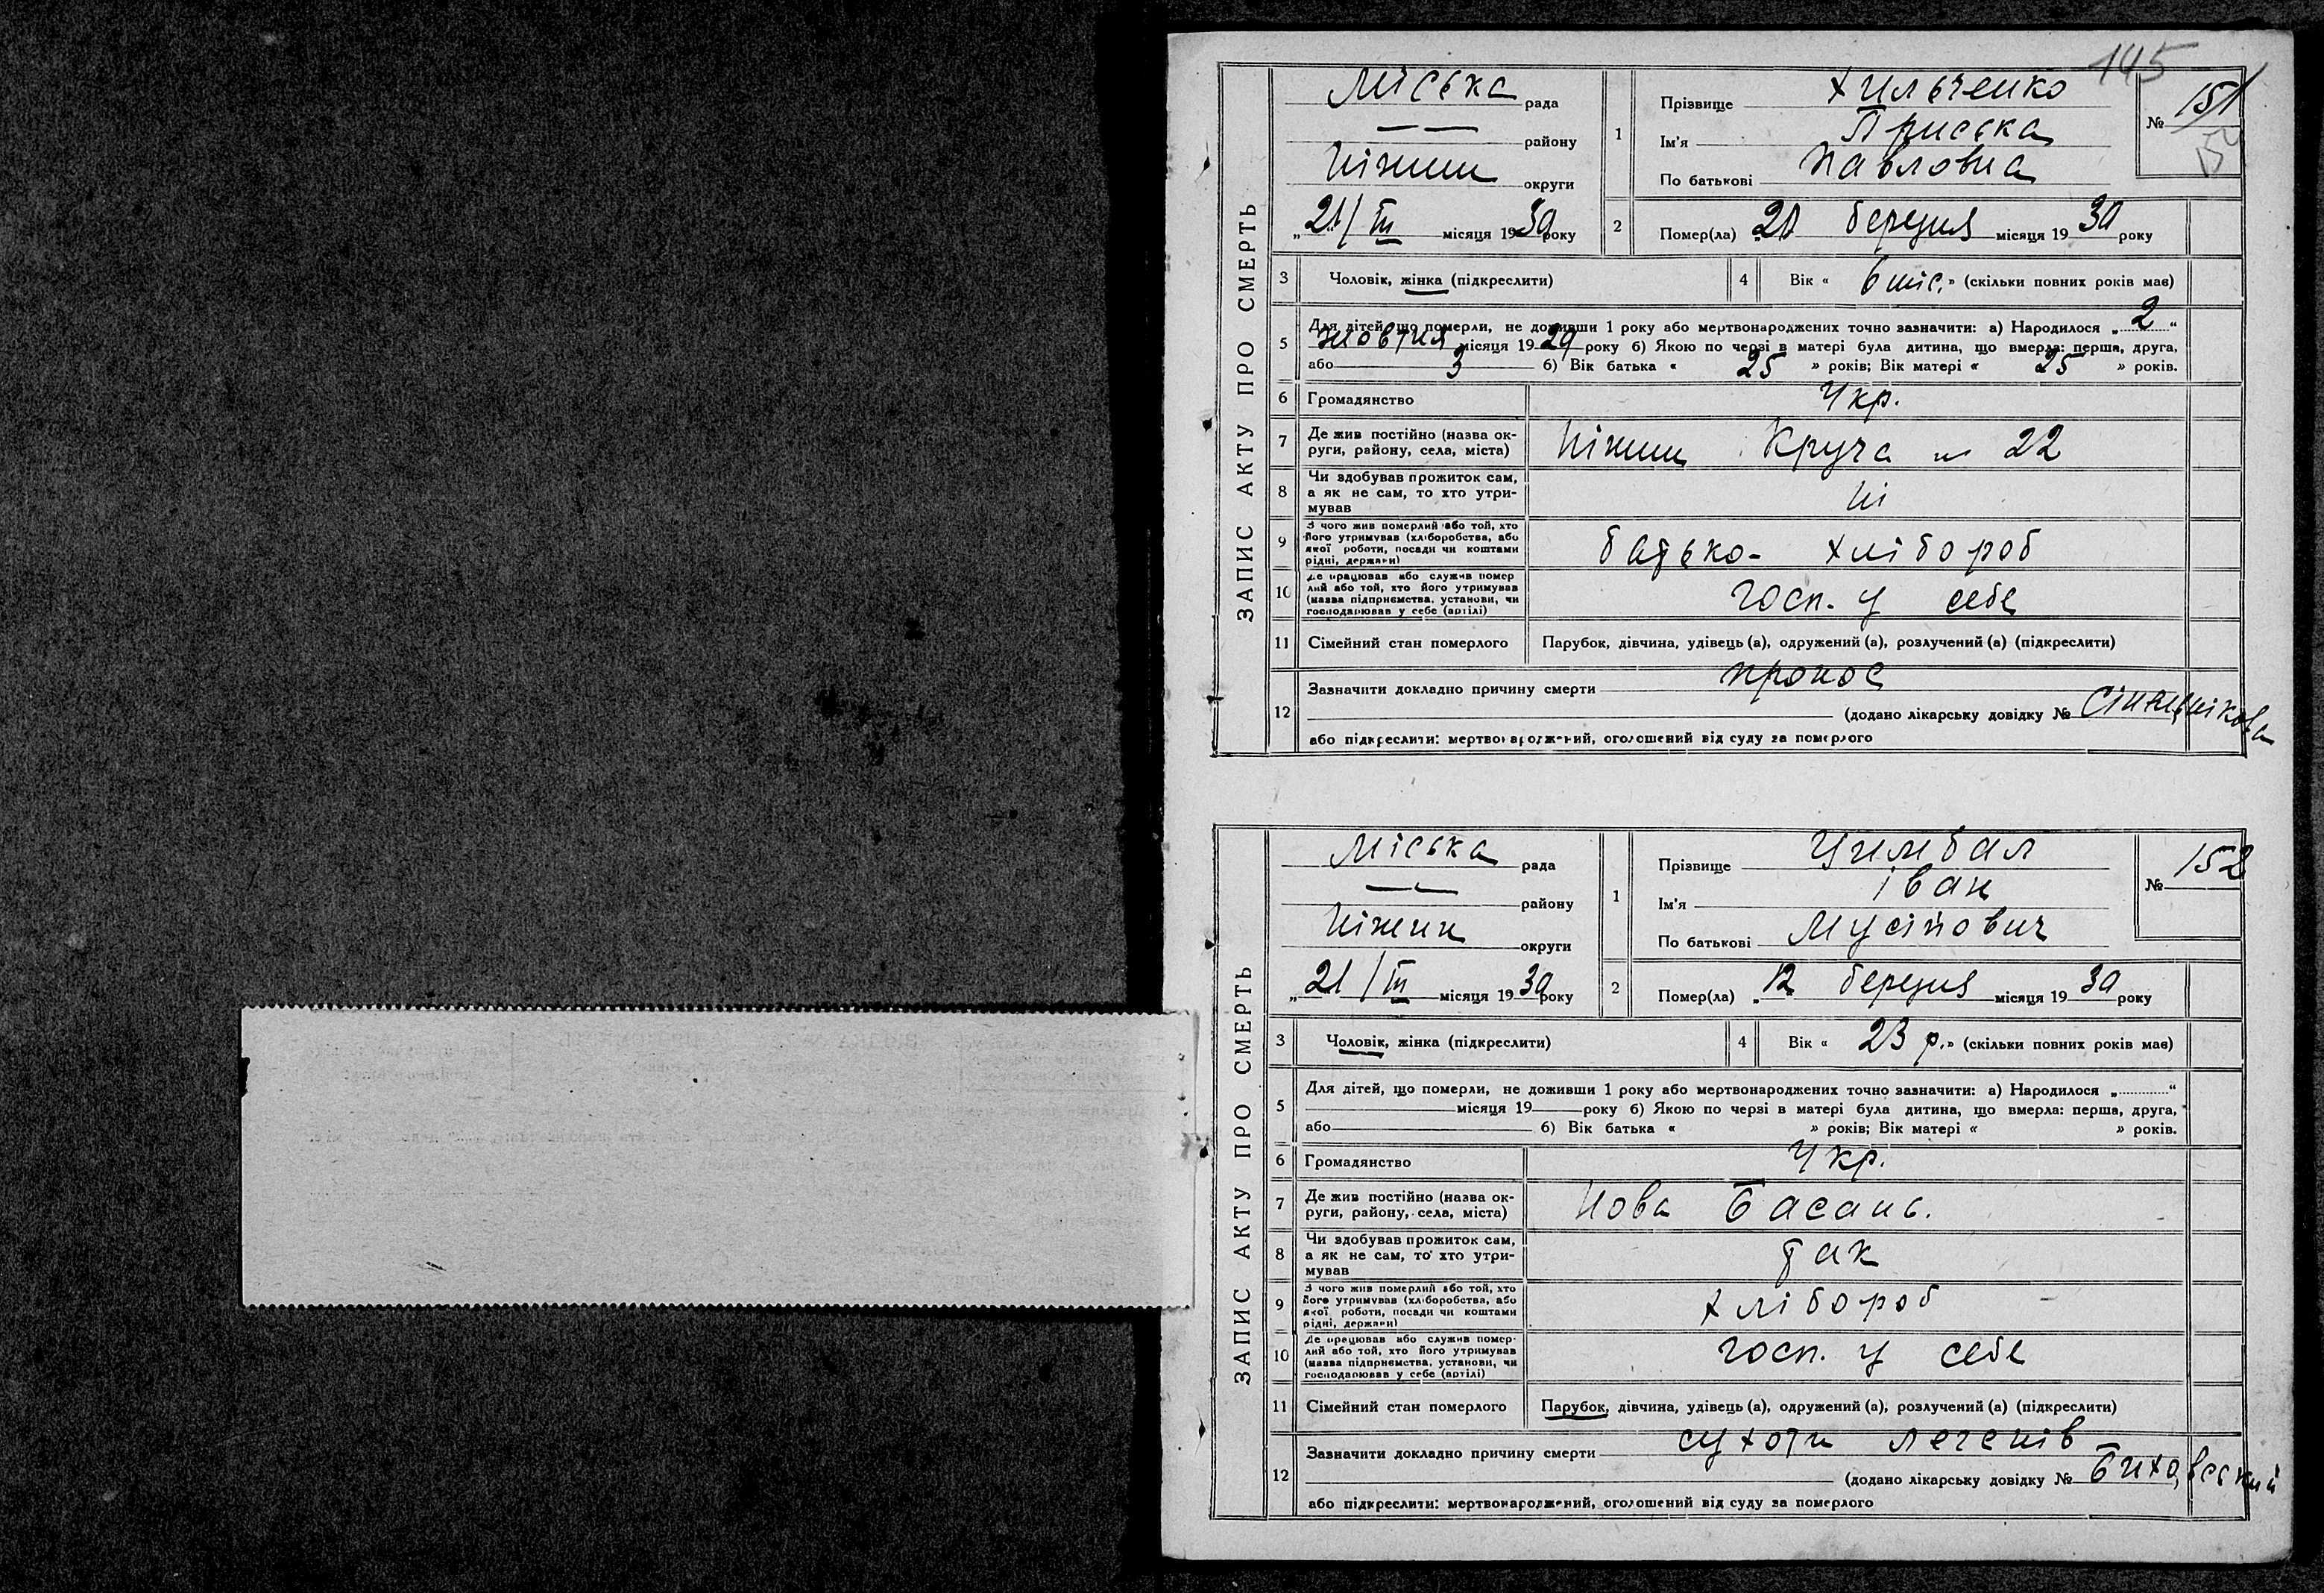 145
ЗАПИС АКТУ ПРО СМЕРТЬ
Міська рада
району
Ніжин округи
„21/III місяця 1930 року
1 Прізвище Хильченко
Ім'я Приська
По батькові Павловна
№ 151
152
2 Помер(ла) 21 березня місяця 1930 року
3 Чоловік, жінка (підкреслити)
4 Вік « 6 міс.» (скільки повних років має)
5 Для дітей, що померли, не доживши 1 року або мертвонароджених точно зазначити: а) Народилося „2“
жовтня місяця 1929 року б) Якою по черзі в матері була дитина, що вмерла: перша, друга,
або 3 б) Вік батька « 25 » років; Вік матері « 25 » років.
6 Громадянство Укр.
7 Де жив постійно (назва округи, району, села, міста) Ніжин Круча № 22
8 Чи здобував прожиток сам, а як не сам, то хто утримував ні
9 З чого жив померлий або той, хто його утримував (хліборобства, або якої роботи, посади чи коштами рідні, держави) батько - хлібороб
10 Де працював або служив померлий або той, хто його утримував (назва підприємства, установи, чи господарював у себе (артілі) госп. у себе
11 Сімейний стан померлого Парубок, дівчина, удівець (а), одружений (а), розлучений (а) (підкреслити)
12 Зазначити докладно причину смерти пронос
(додано лікарську довідку №
або підкреслити: мертвонароджений, оголошений від суду за померлого
ЗАПИС АКТУ ПРО СМЕРТЬ
Міська рада
району
Ніжин округи
„21/III місяця 1930 року
1 Прізвище Цимбал
Ім'я Іван
По батькові Мусійович
№ 152
2 Помер(ла) „12 березня місяця 1930 року
3 Чоловік, жінка (підкреслити)
4 Вік « 23 р.» (скільки повних років має)
5 Для дітей, що померли, не доживши 1 року або мертвонароджених точно зазначити: а) Народилося „ “
місяця 19 року б) Якою по черзі в матері була дитина, що вмерла: перша, друга,
або б) Вік батька « » років; Вік матері « » років.
6 Громадянство Укр.
7 Де жив постійно (назва округи, району, села, міста) Нова Басань.
8 Чи здобував прожиток сам, а як не сам, то хто утримував так
9 З чого жив померлий або той, хто його утримував (хліборобства, або якої роботи, посади чи коштами рідні, держави) хлібороб
10 Де працював або служив померлий або той, хто його утримував (назва підприємства, установи, чи господарював у себе (артілі) госп. у себе
11 Сімейний стан померлого Парубок, дівчина, удівець (а), одружений (а), розлучений (а) (підкреслити)
12 Зазначити докладно причину смерти сухоти легенів
(додано лікарську довідку № Биховський
або підкреслити: мертвонароджений, оголошений від суду за померлого